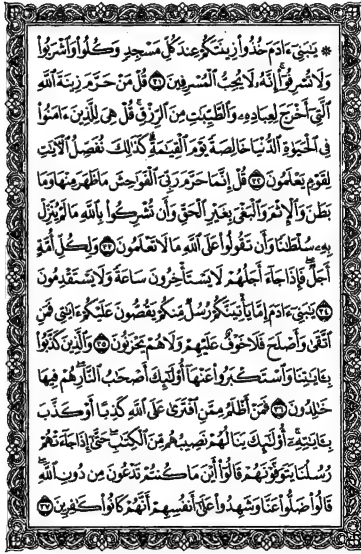 ۞ يَٰبَنِىٓ ءَادَمَ خُذُوا۟ زِينَتَكُمْ عِندَ كُلِّ مَسْجِدٍ وَكُلُوا۟ وَٱشْرَبُوا۟
وَلَا تُسْرِفُوٓا۟ ۚ إِنَّهُۥ لَا يُحِبُّ ٱلْمُسْرِفِينَ ۝٣١ قُلْ مَنْ حَرَّمَ زِينَةَ ٱللَّهِ
ٱلَّتِىٓ أَخْرَجَ لِعِبَادِهِۦ وَٱلطَّيِّبَٰتِ مِنَ ٱلرِّزْقِ ۚ قُلْ هِىَ لِلَّذِينَ ءَامَنُوا۟
فِى ٱلْحَيَوٰةِ ٱلدُّنْيَا خَالِصَةً يَوْمَ ٱلْقِيَٰمَةِ ۗ كَذَٰلِكَ نُفَصِّلُ ٱلْءَايَٰتِ
لِقَوْمٍ يَعْلَمُونَ ۝٣٢ قُلْ إِنَّمَا حَرَّمَ رَبِّىَ ٱلْفَوَٰحِشَ مَا ظَهَرَ مِنْهَا وَمَا
بَطَنَ وَٱلْإِثْمَ وَٱلْبَغْىَ بِغَيْرِ ٱلْحَقِّ وَأَن تُشْرِكُوا۟ بِٱللَّهِ مَا لَمْ يُنَزِّلْ
بِهِۦ سُلْطَٰنًا وَأَن تَقُولُوا۟ عَلَى ٱللَّهِ مَا لَا تَعْلَمُونَ ۝٣٣ وَلِكُلِّ أُمَّةٍ
أَجَلٌ ۖ فَإِذَا جَآءَ أَجَلُهُمْ لَا يَسْتَأْخِرُونَ سَاعَةً ۖ وَلَا يَسْتَقْدِمُونَ
۝٣٤ يَٰبَنِىٓ ءَادَمَ إِمَّا يَأْتِيَنَّكُمْ رُسُلٌ مِّنكُمْ يَقُصُّونَ عَلَيْكُمْ ءَايَٰتِى ۙ فَمَنِ
ٱتَّقَىٰ وَأَصْلَحَ فَلَا خَوْفٌ عَلَيْهِمْ وَلَا هُمْ يَحْزَنُونَ ۝٣٥ وَٱلَّذِينَ كَذَّبُوا۟
بِـَٔايَٰتِنَا وَٱسْتَكْبَرُوا۟ عَنْهَآ أُو۟لَٰٓئِكَ أَصْحَٰبُ ٱلنَّارِ ۖ هُمْ فِيهَا
خَٰلِدُونَ ۝٣٦ فَمَنْ أَظْلَمُ مِمَّنِ ٱفْتَرَىٰ عَلَى ٱللَّهِ كَذِبًا أَوْ كَذَّبَ
بِـَٔايَٰتِهِۦٓ ۚ أُو۟لَٰٓئِكَ يَنَالُهُمْ نَصِيبُهُم مِّنَ ٱلْكِتَٰبِ ۖ حَتَّىٰٓ إِذَا جَآءَتْهُمْ
رُسُلُنَا يَتَوَفَّوْنَهُمْ قَالُوٓا۟ أَيْنَ مَا كُنتُمْ تَدْعُونَ مِن دُونِ ٱللَّهِ ۖ
قَالُوا۟ ضَلُّوا۟ عَنَّا وَشَهِدُوا۟ عَلَىٰٓ أَنفُسِهِمْ أَنَّهُمْ كَانُوا۟ كَٰفِرِينَ ۝٣٧